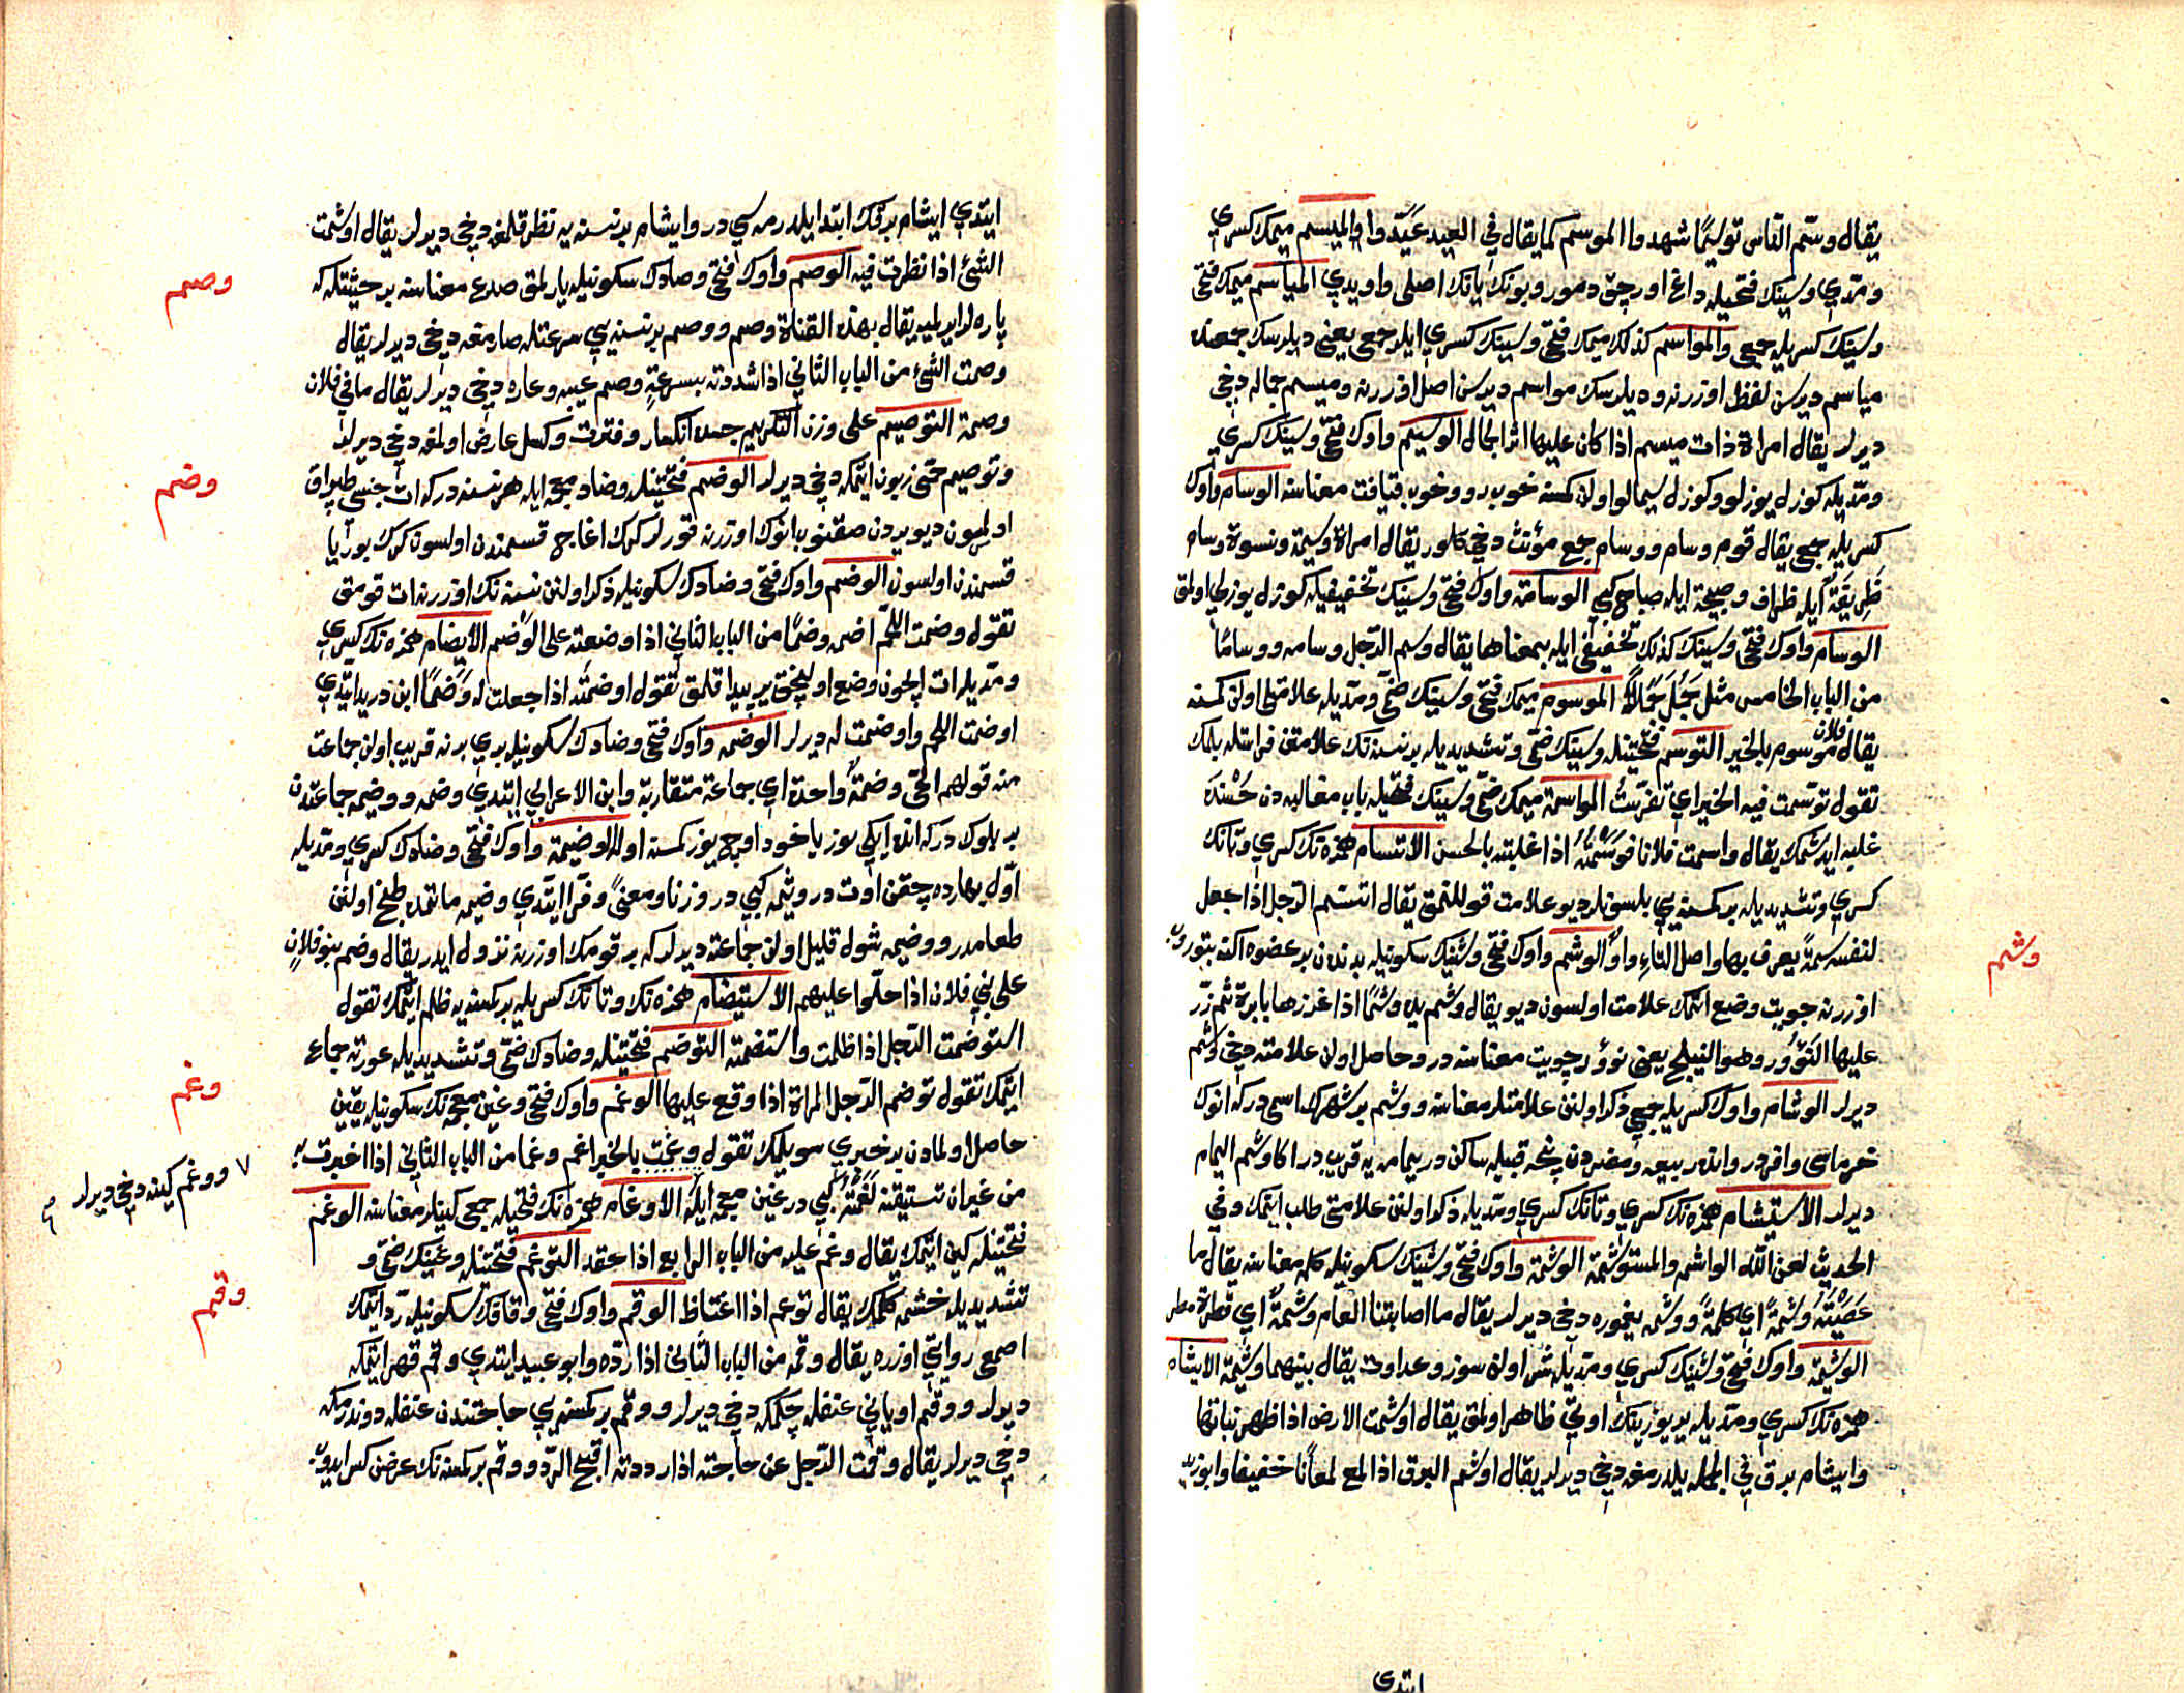 يقال وسّم الناس توسيمًا شهدوا الموسم كما يقال في العيد عيّدوا والميسم ميمك كسري
ومدّي وسينك فتحيله داغ اورجق دمور وبونك يانك اصلى واويدي المياسم ميمك فتحى
وسينك كسريله جمعى والمواسم كذلك ميمك فتحى وسينك كسري ايله جمعى يعنى ديلرسك جمعنده
مياسم ديرسن لفظ اوزرنه وديلرسك مواسم ديرسن اصل اوزرنه وميسم جماله دخى
ديرلر يقال امراة ذات ميسم اذا كان عليها اثر الجمال الوسيم واوك فتحى وسينك كسري
ومدّيله كوزل يوزلو وكوزل سيمالو اولان كمسنه خوب رو وخوب قيافت معناسنه الوسام واوك
كسريله جمعى يقال قوم وسام ووسام جمع مؤنث دخى كلور يقال امراة وسيمة ونسوة وسام
ظريفة ايله ظراف وصبيحة ايله صباح كبي الوسامة واوك فتحى وسينك تخفيفيله كوزل يوزلي اولمق
الوسام واوك فتحى وسينك كذلك تخفيفى ايله بمعناها يقال وسم الرّجل وسامه ووسامًا
من الباب الخامس مثل جَمُلَ جَمَالًا الموسوم ميمك فتحى وسينك ضمّى ومدّيله علامتلى اولان كمسنه
يقال فلان موسوم بالخير التوسّم فتحتينله وسينك ضمّى وتشديديله بر نسنه نك علامتن فراستله بلمك
تقول توسّمت فيه الخير اي تفرّست المواسمة ميمك ضمّى وسينك فتحيله باب مغالبه دن حُسْنده
غلبه ايدشمك يقال واسمت فلانا فوسمته اذا غلبته بالحسن الاتسام همزه نك كسري وتانك
كسري وتشديديله بر كمسنه يي بلسونلر ديو علامت قوللنمق يقال اتسم الرّجل اذا جعل
لنفسه سمةً يعرف بها واصل التاء واوٌ الوشم واوك فتحى وشينك سكونيله بدندن بر عضوه اكنه بتوروب
اوزرنه چويت وضع اتمك علامت اولسون ديو يقال وشم يده وشمًا اذا غرزها بابرة ثم ذرّ
عليها النَّؤُور وهو النيلج يعنى نوؤر چويت معناسنه در وحاصل اولان علامته دخى وشم
ديرلر الوشام واوك كسريله جمعى ذكر اولنان علامتلر معناسنه ووشم بر شهرك اسمى دركه انوك
خرماسى واقردر وانده ربيعه ومضردن برنجه قبيله ساكن در يمامه يه قريب در اكا وشم اليمام
ديرلر الاستيشام همزه نك كسري وتانك كسري ومدّيله ذكر اولنان علامتى طلب ايتمك وفي
الحديث لعن اللّه الواشمه والمستوشمة الوشمة واوك فتحى وشينك سكونيله كلمه معناسنه يقال ما
عصيته وشمةً اي كلمةً ووشمه يغموره دخى ديرلر يقال ما اصابتنا العام وشمةٌ اي قطرة مطر
الوشيمة واوك فتحى وشينك كسري ومدّيله شر اولان سوز وعداوت يقال بينهما وشيمة الايشام
همزه نك كسري ومدّيله ير يوزينك اوتى ظاهر اولمق يقال اوشمت الارض اذا ظهر نباتها
وايشام برق في الجمله يلدرمغه دخى ديرلر يقال اوشم البرق اذا لمع لمعانًا خفيفا وابوزيد
ابتدي
وشم
ايتدي ايشام برقك ابتدا يلدرمه سي در وايشام بر نسنه يه نظر قلمغه دخى ديرلر يقال اوشمت
الشئ اذا نظرت فيه الوصم واوك فتحى وصادك سكونيله يارلمق صدع معناسنه بر حيثيتله كه
پاره لر ايرلميه يقال بهذه القناة وصم ووصم بر نسنه يي سرعتله صارمغه دخى ديرلر يقال
وصمت الشئ من الباب الثاني اذا شددته بسرعةٍ وصم عيبه وعاره دخى ديرلر يقال ما في فلان
وصمة التوصيم على وزن التكريم جسده انكسار وفترت وكسل عارض اولمغه دخى ديرلر
وتوصيم حمّى زبون ايتمكه دخى ديرلر الوضم فتحتينله وضاد معجمه ايله هر نسنه دركه ات جنسى طپراق
اولميون ديو يردن صقنوب انوك اوزرنه قورلر كرك اغاج قسمندن اولسون كرك بوريا
قسمندن اولسون الوضم واوك فتحى وضادك سكونيله ذكر اولنن نسنه نك اوزرينه ات قومق
تقول وضمت اللحم اضمه وضمًا من الباب الثاني اذا وضعته على الوضم الايضام همزه نك كسري
ومدّيله ات ايچون وضع اولنجق ير پيدا قلمق تقول اوضمته اذا جعلت له وَضَمًا ابن دريد ايتدي
اوضمت اللحم واوضمت له ديرلر الوضمه واوك فتحى وضادك سكونيله بري برنه قريب اولان جماعت
منه قولهم الحىّ وضمةٌ واحدة اي جماعة متقاربة وابن الاعرابي ايتدي وضمه ووضيمه جماعتدن
بر بلوك دركه انده ايكي يوز ياخود اوچ يوز كمسنه اوله الوضيمة واوك فتحى وضادك كسري ومدّيله
اوّل بهارده چقن اوت در وثيمه كبي در وزنا ومعنًى وفرّا ايتدي وضيمه ماتمده طبخ اولنن
طعامدر ووضيمه شول قليل اولان جماعته ديرلر كه بر قومك اوزرنه نزول ايدر يقال وضم بنو فلان
على بني فلان اذا حلّوا عليهم الاستيضام همزه نك وتانك كسريله بر كمسنه يه ظلم ايتمك تقول
استوضمت الرّجل اذا ظلمت واستضمته التوضّم فتحتينله وضادك ضمّى وتشديديله عورته جماع
ايتمك تقول توضم الرّجل المراة اذا وقع عليها الوغم واوك فتحى وغين معجمه نك سكونيله يقين
حاصل اولمادن بر خبري سويلمك تقول وغمت بالخبر اغم وغما من الباب الثاني اذا اخبرت به
من غير ان تستيقنه لغمته كبي در غين معجمه ايله الاوغام همزه نك فتحيله جمعى كينلر معناسنه الوغم
فتحتينله كين ايتمك يقال وغم عليه من الباب الرابع اذا حقد التوغّم فتحتينله وغينك ضمّى و
تشديديله خشمه كلمك يقال توغم اذا اغتاظ الوقم واوك فتحى وقافك سكونيله ردّ ايتمك
اصمعى روايتي اوزره يقال وقمه من الباب الثاني اذا ردّه وابو عبيد ايتدي وقم قهر ايتمكه
ديرلر ووقم اويانى عنفله چكمكه دخى ديرلر ووقم بر كمسنه يي حاجتندن عنفله دوندرمكه
دخى ديرلر يقال وقمت الرّجل عن حاجته اذا رددته اقبح الردّ ووقم بر كمسنه نك عرضن كسر ايدوب
وصم
وضم
وغم
٧ ووغم كينه دخى ديرلر صح
وقم